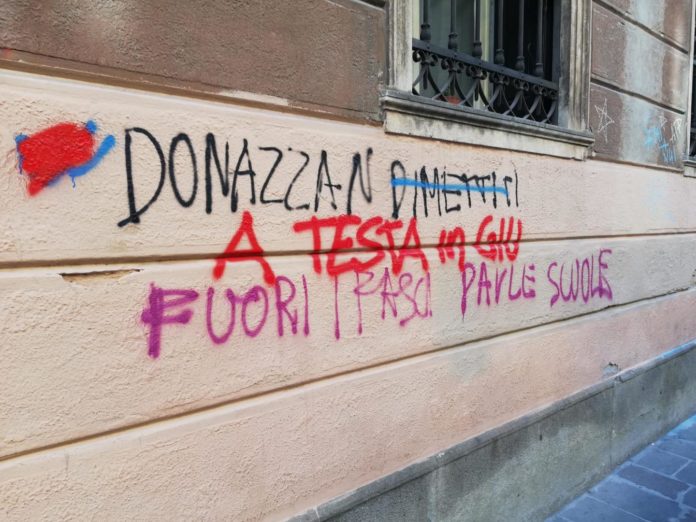 DONAZZAN DIMETTITI
A TESTA in GIU
FUORI I FASCI DALLE SCUOLE